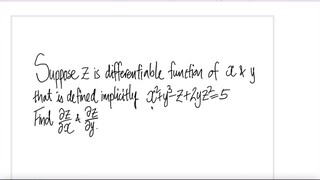 Suppose z is differentiable function of x & y
that is defined implicitly x²+y³-z+2yz²=5
Find ∂z/∂x & ∂z/∂y.